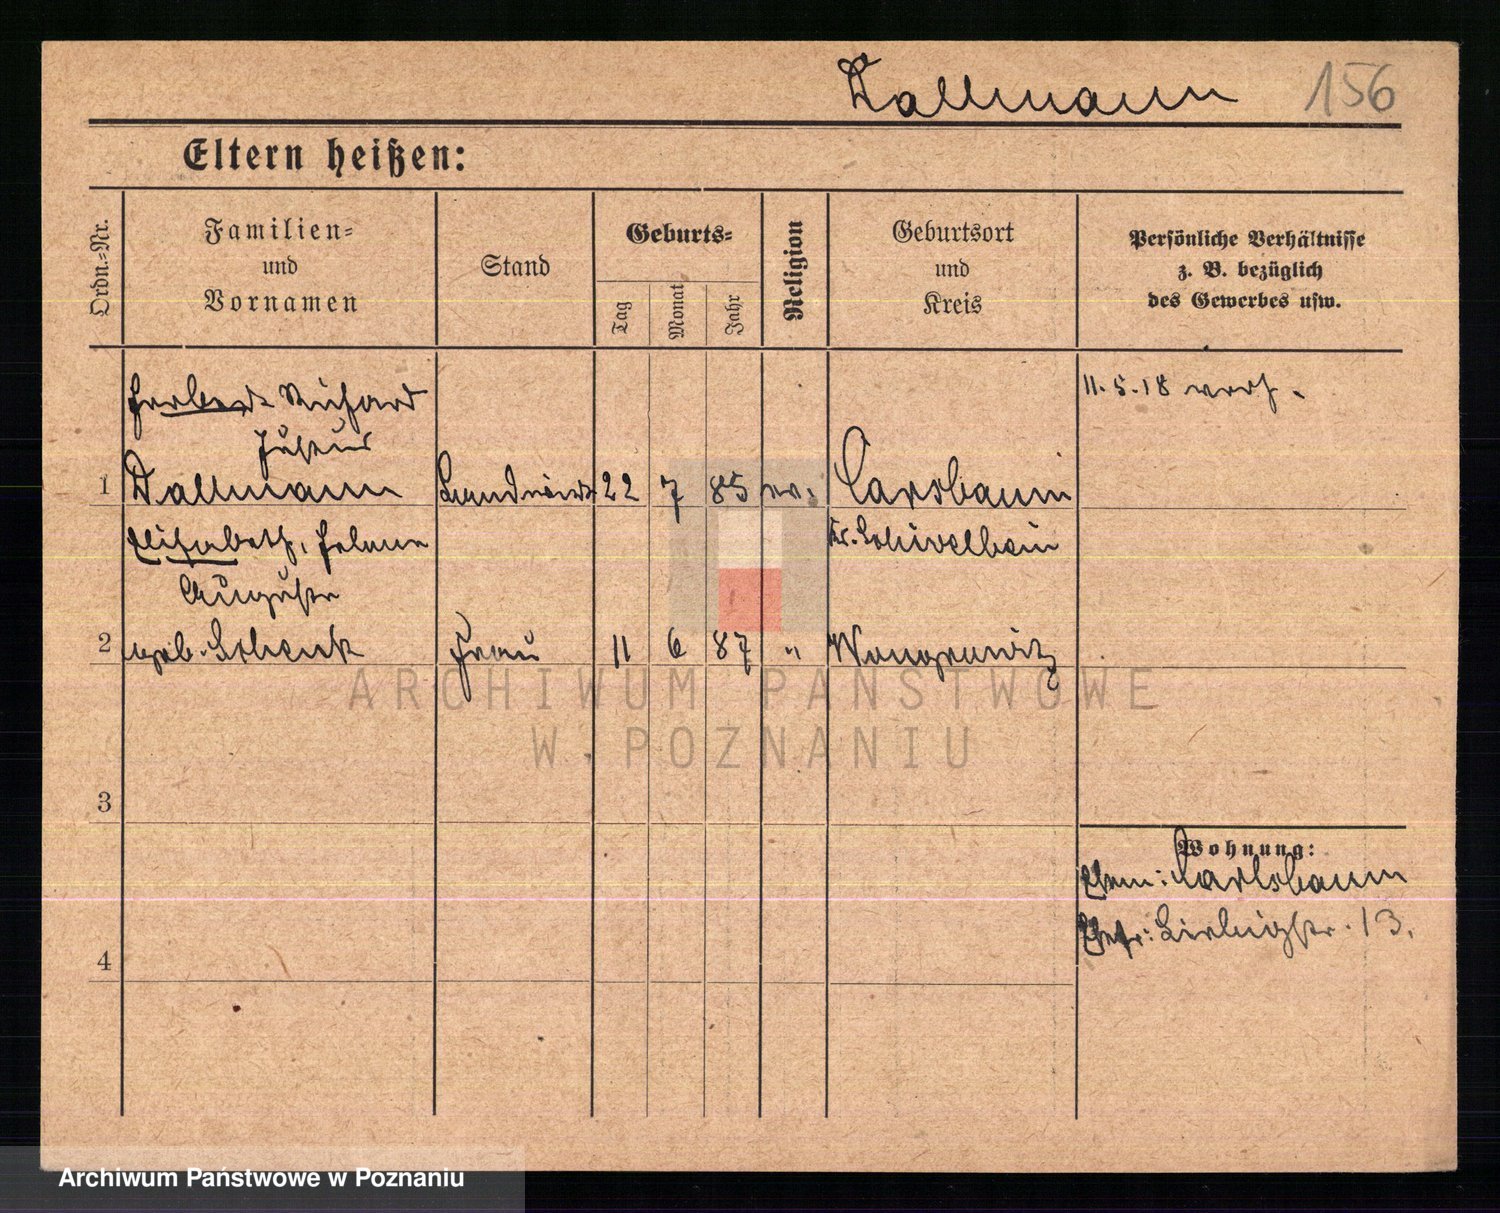 Dallmann 156
Eltern heißen:
Ordn.-Nr.
Familien-
und
Vornamen
Stand
Geburts-
Tag
Monat
Jahr
Religion
Geburtsort
und
Kreis
Persönliche Verhältnisse
z. B. bezüglich
des Gewerbes usw.
Herbert Richard
Julius
11.5.18 verh.
1 Dallmann Landwirt 22 7 85 ev. Carsbaum
Elisabeth, Helene Kr. Schivelbein
Auguste
2 geb. Schenk Frau 11 6 87 " Wongrowitz
3
Wohnung:
Ehem: Carlsbaum
Ehefr: Liebigstr. 13.
4
ARCHIWUM PAŃSTWOWE
W POZNANIU
Archiwum Państwowe w Poznaniu